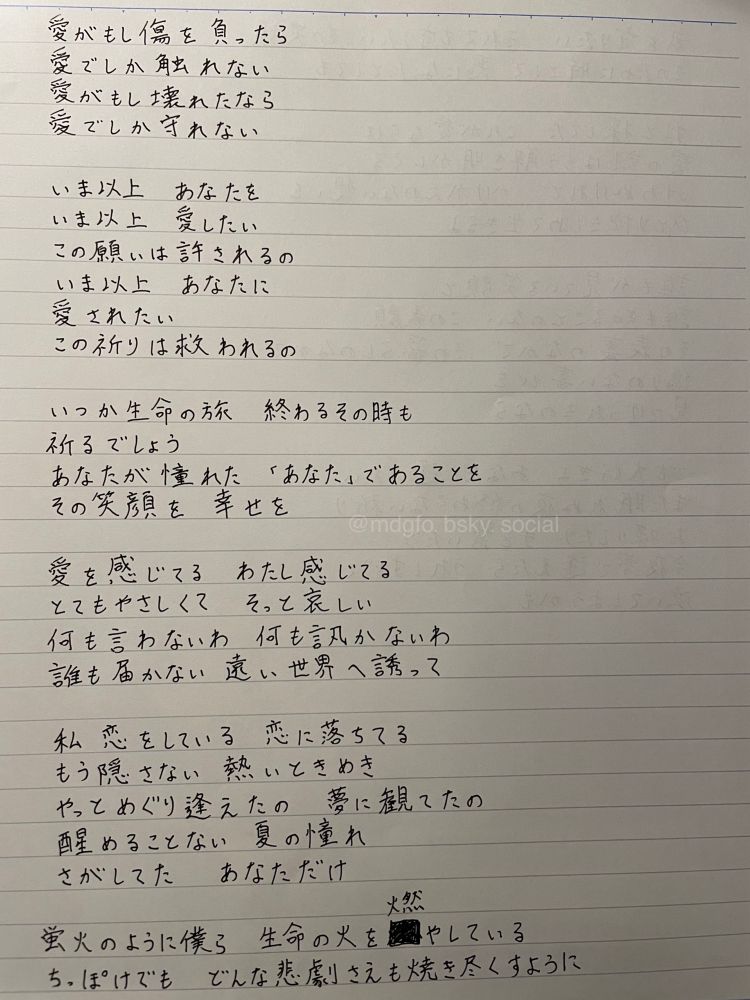 愛がもし傷を 負ったら
愛でしか 触れない
愛がもし壊れたなら
愛でしか守れない
いま以上 あなたを
いま以上 愛したい
この願いは許されるの
いま以上 あなたに
愛されたい
この祈りは救われるの
いつか生命の旅 終わるその時も
祈るでしょう
あなたが憧れた 「あなた」であることを
その笑顔を 幸せを
愛を感じてる わたし感じてる
とてもやさしくて そっと哀しい
何も言わないわ 何も訊かないわ
誰も届かない 遠い世界へ誘って
私 恋をしている 恋に落ちてる
もう隠さない 熱いときめき
やっとめぐり逢えたの 夢に観てたの
醒めることない 夏の憧れ
さがしてた あなただけ
蛍火のように僕ら 生命の火を燃やしている
ちっぽけでも どんな悲劇さえも焼き尽くすように
@mdgfo.bsky.social